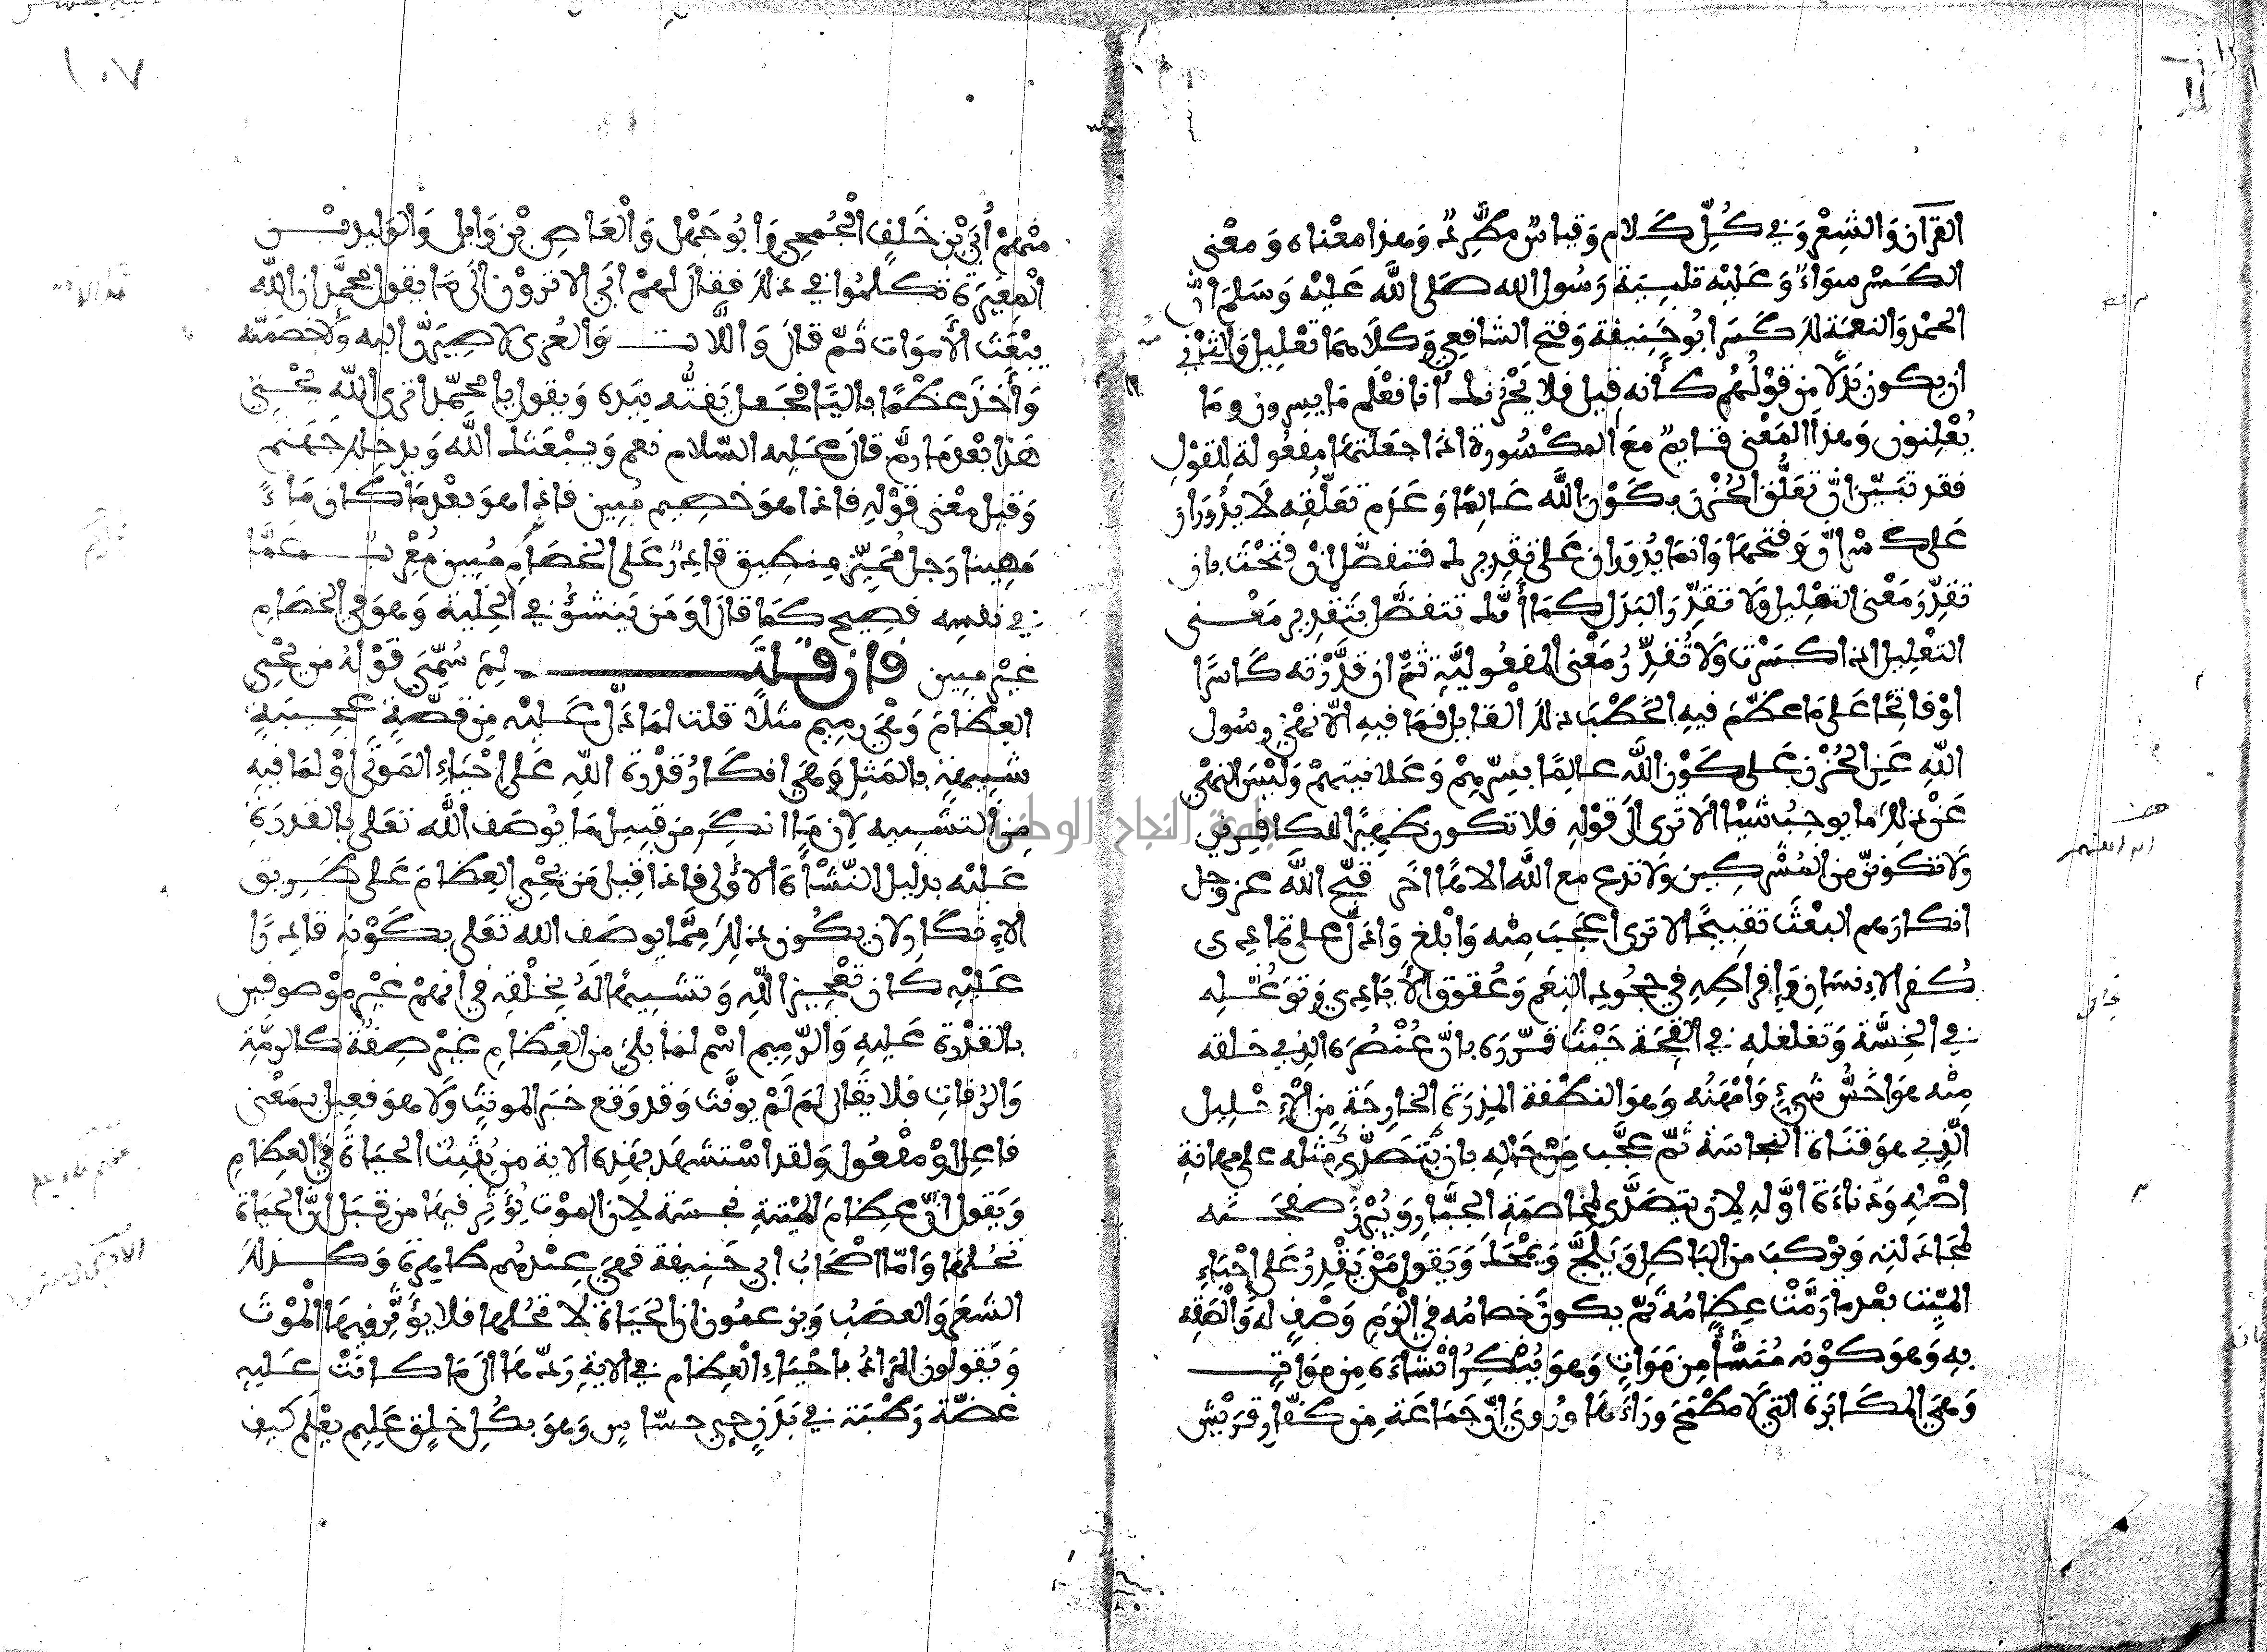 القرآن والشعر وفي كل كلام وقياس مطرد وهذا معناه ومعنى
الكسر سواء وعليه تلبية رسول الله صلى الله عليه وسلم ان
الحمد والنعمة لك كسر ابو حنيفة وفتح الشافعي وكلاهما تعليل والثاني
ان يكون بدلا من قولهم كأنه قيل فلا يحزنك أنا نعلم ما يسرون وما
يعلنون وهذا المعنى قايم مع المكسورة اذا جعلتها مفعولة للقول
فقد تبين ان تعلق الحزن بكون الله عالما وعدم تعلقه لا يدوران
على كسر ان وفتحها وانما يدوران على تقديرك فتفصل ان فتحت بان
تقدر معنى التعليل ولا تقدر البدل كما أنك تتفصل بتقدير معنى
التعليل اذا كسرت ولا تقدر معنى المفعولية ثم ان قدرته كاسرا
او فاتحا على ما عظم فيه الخطب ذلك القايل فما فيه الا نهي رسول
الله عن الحزن على كون الله عالما بسرهم وعلانيتهم وليس النهي
عن ذلك ما يوجب شيئا الا ترى الى قوله فلا تكون ظهيرا للكافرين
ولا تكونن من المشركين ولا تدع مع الله الاها اخر قبح الله عز وجل
انكارهم البعث تقبيحا لا ترى اعجب منه وابلغ وادل على تمادي
كفر الانسان وإفراطه في جحود النعم وعقوق الأيادي وتوغله
في الخسة وتغلغله في القحة حيث قرره بان عنصره الذي خلقه
منه هو اخس شيء وامهنه وهو النطفة المذرة الخارجة من الإحليل
الذي هو قناة النجاسة ثم عجب من حاله بان يتصدى مثله على مهانة
اصله ودناءة اوله لان يتصدى لمخاصمة الجبار ويبرز صفحته
لمجادلته ويركب من الباطل ويلج ويمحك ويقول من يقدر على احياء
الميت بعدما رمت عظامه ثم يكون خصامه في الزم وصف له والصقه
به وهو كونه منشأ من موات وهو ينكر انشاءه من موات
وهي المكابرة التي لا مطمح وراءها وروي ان جماعة من كفار قريش
١٠٧
منهم أبي بن خلف الجمحي وابو جهل والعاص بن وايل والوليد بن
المغيرة تكلموا في ذلك فقال لهم ابي الا ترون الى ما يقول محمد ان الله
يبعث الأموات ثم قال واللات والعزى لاصيرن اليه ولاخصمنه
وأخذ عظما باليا فجعل يفته بيده ويقول يا محمد اترى الله يحيي
هذا بعدما رم قال عليه السلام نعم ويبعثك الله ويدخلك جهنم
وقيل معنى قوله فاذا هو خصيم مبين فاذا هو بعد ما كان ماء
مهينا رجل مميز منطيق قادر على الخصام مبين معرب عما
في نفسه فصيح كما قال او من ينشؤ في الحلية وهو في الخصام
غير مبين فان قلت لم سمي قوله من يحيي
العظام وهي رميم مثلا قلت لما دل عليه من قصة عجيبة
شبيهة بالمثل وهي انكار قدرة الله على احياء الموتى او لما فيه
من التشبيه لان ما انكر من قبيل ما يوصف الله تعلى بالقدرة
عليه بدليل النشأة الأولى فاذا قيل من يحيي العظام على طريق
الإنكار لان يكون ذلك مما يوصف الله تعلى بكونه قادرا
عليه كان تعجيزا لله وتشبيها له بخلقه في انهم غير موصوفين
بالقدرة عليه والرميم اسم لما بلي من العظام غير صفة كالرمة
والرفات فلا يقال لم لم يؤنث وقد وقع خبرا لمونث ولا هو فعيل بمعنى
فاعل او مفعول ولقد استشهد بهذه الاية من يثبت الحياة في العظام
ويقول ان عظام الميتة نجسة لان الموت يؤثر فيها من قبل ان الحياة
تحلها واما اصحاب ابي حنيفة فهي عندهم طاهرة وكذلك
الشعر والعصب ويزعمون ان الحياة لا تحلها فلا يؤثر فيها الموت
ويقولون المراد باحياء العظام في الاية ردها الى ما كانت عليه
غضة رطبة في بدن حي حساس وهو بكل خلق عليم يعلم كيف
النجاح الوطني